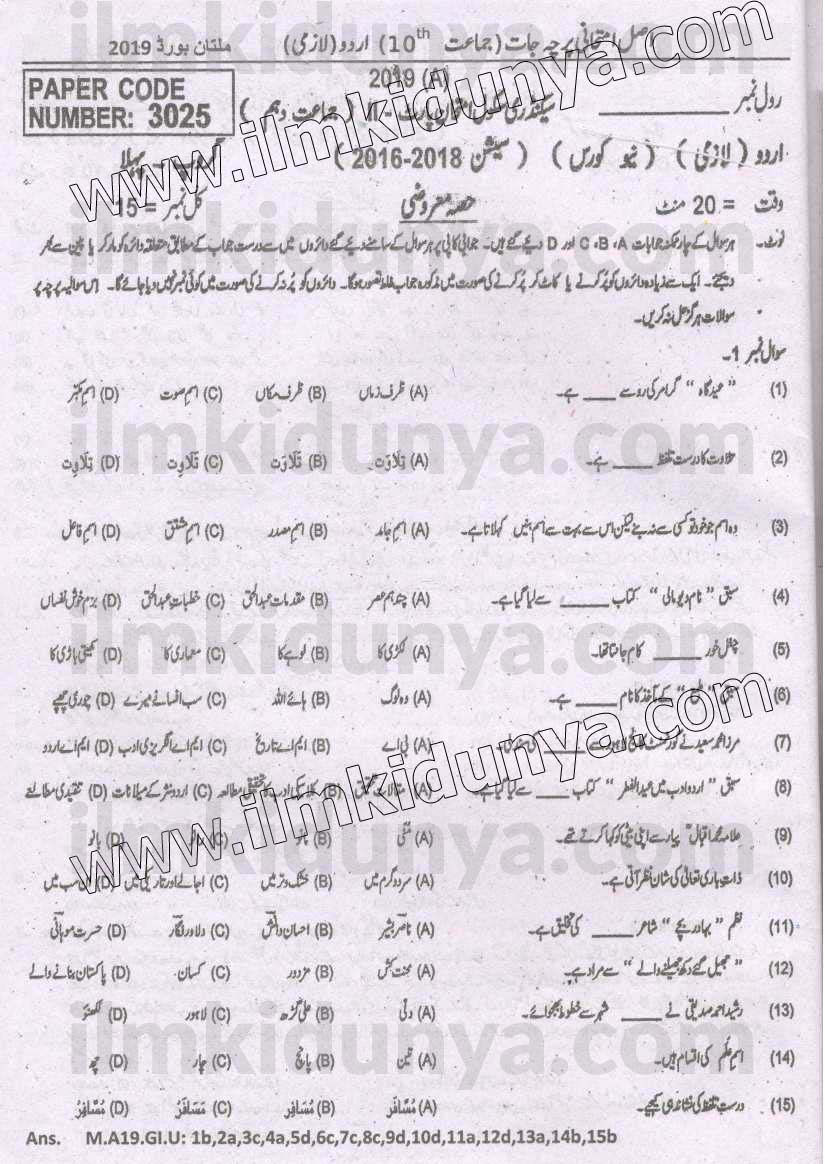 اصل امتحانی پرچہ جات (جماعت 10th) اردو (لازمی) ملتان بورڈ 2019
PAPER CODE
NUMBER: 3025
2019 (A)
رول نمبر ____ سیکنڈری سکول امتحان پارٹ - II (جماعت دہم)
اردو (لازمی) (نیو کورس) (سیشن 2018-2016) گروپ - پہلا
وقت = 20 منٹ حصہ معروضی کل نمبر = 15
نوٹ۔ ہر سوال کے چار ممکنہ جوابات A، B، C اور D دیئے گئے ہیں۔ جوابی کاپی پر ہر سوال کے سامنے دیئے گئے دائروں میں سے درست جواب کے مطابق متعلقہ دائرہ کو مارکر یا پین سے بھر
دیجئے۔ ایک سے زیادہ دائروں کو پُر کرنے یا کاٹ کر پُر کرنے کی صورت میں مذکورہ جواب غلط تصور ہوگا۔ دائروں کو پُر نہ کرنے کی صورت میں کوئی نمبر نہیں دیا جائے گا۔ اس سوالیہ پرچہ پر
سوالات ہرگز حل نہ کریں۔
سوال نمبر 1۔
(1) "عیدگاہ" گرامر کی رو سے ____ ہے۔ (A) ظرف زماں (B) ظرف مکاں (C) اسم صوت (D) اسم مکبر
(2) تلاوت کا درست تلفظ ____ ہے۔ (A) تِلاوَت (B) تَلاوَت (C) تَلاوِت (D) تِلاوِت
(3) وہ اسم جو خود تو کسی سے نہ بنے لیکن اس سے بہت سے اسم بنیں کہلاتا ہے۔ (A) اسم جامد (B) اسم مصدر (C) اسم مشتق (D) اسم فاعل
(4) سبق "نام دیو مالی" کتاب ____ سے لیا گیا ہے۔ (A) چند ہم عصر (B) مقدمات عبدالحق (C) خطبات عبدالحق (D) بزم خوش نفساں
(5) چغل خور ____ کام جانتا تھا۔ (A) لکڑی کا (B) لوہے کا (C) معماری کا (D) کھیتی باڑی کا
(6) سبق " " کے ماخذ کا نام ____ ہے۔ (A) وہ لوگ (B) ہائے اللہ (C) سب افسانے میرے (D) چوری چھپے
(7) مرزا محمد سعید نے گورنمنٹ کالج لاہور سے ____ کی سند لی۔ (A) بی اے (B) ایم اے تاریخ (C) ایم اے انگریزی ادب (D) ایم اے اردو
(8) سبق "اردو ادب میں عیدالفطر" کتاب ____ سے لیا گیا ہے۔ (A) مقالات تحقیق (B) کلاسیکی ادب کا تحقیقی مطالعہ (C) اردو نثر کے میلانات (D) تنقیدی مطالعے
(9) علامہ محمد اقبال پیار سے اپنی بیٹی کو کہا کرتے تھے۔ (A) مُنّی (B) (C) (D) بانو
(10) ذات باری تعالیٰ کی شان نظر آتی ہے۔ (A) سرد و گرم میں (B) خشک و تر میں (C) اجالے اور تاریکی میں (D) ان سب میں
(11) نظم "بہادر بچے" شاعر ____ کی تخلیق ہے۔ (A) ناصر بشیر (B) احسان دانش (C) دلاور فگار (D) حسرت موہانی
(12) "جھیل گئے دکھ جھیلنے والے" سے مراد ہے۔ (A) محنت کش (B) مزدور (C) کسان (D) پاکستان بنانے والے
(13) رشید احمد صدیقی نے ____ شہر سے خطوط بھجوائے۔ (A) دلی (B) علی گڑھ (C) لاہور (D) لکھنؤ
(14) اسم علم کی اقسام ہیں۔ (A) تین (B) پانچ (C) چار (D) چھ
(15) درست تلفظ کی نشاندہی کیجیے۔ (A) مُسَافَر (B) مُسَافِر (C) مَسَافَر (D) مُسَّافِرُ
Ans. M.A19.GI.U: 1b,2a,3c,4a,5d,6c,7c,8c,9d,10d,11a,12d,13a,14b,15b
www.ilmkidunya.com
www.ilmkidunya.com
ilmkidunya.com
ilmkidunya.com
ilmkidunya.com
ilmkidunya.com
ilmkidunya.com
ilmkidunya.com